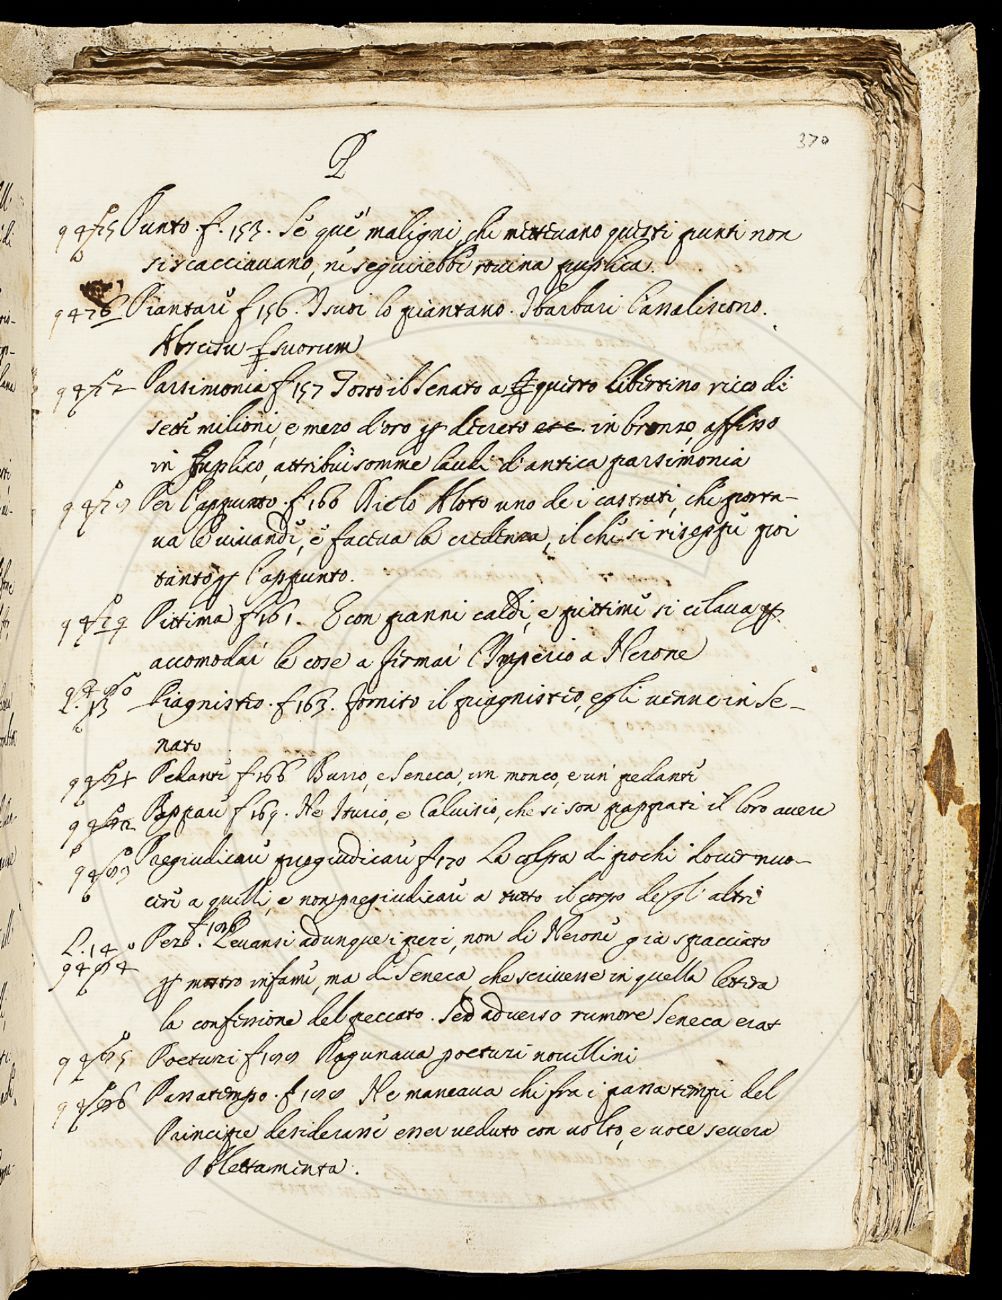 370
P
Punto. f. 153. Se que' maligni, che mettevano questi punti non
si scacciavano, ne seguirebbe rovina publica.
Piantare f. 156. I suoi lo piantano. I barbari l'assaliscono.
suorum
Parsimonia f. 157 Tosto il Senato a questo libertino ricco di
sette milioni, e mezo d'oro decreto in bronzo, affisso
in publico, attribui somme laudi d'antica parsimonia
Per l'appunto. f. 160 Aloto uno de i castrati, che porta-
va le vivande, e faceva la credenza, il che si riseppe poi
tanto l'appunto.
Pittima f. 161. E con panni caldi, e pittime si celava
accomodar le cose a fermar l'Imperio a Nerone
Piagnisteo. f. 163. fornito il piagnisteo, egli venne in Se-
nato
Pedante f. 166 Burro, e Seneca, un monco, e un pedante
Pappare f. 169. Ne Iturio, e Calvisio, che si son pappati il loro avere
Pregiudicare pregiudicare f. 170 La colpa di pochi dover nuo-
cere a quelli, e non pregiudicare a tutto il corpo degli altri
L. 14
Pero. Levansi adunque i peri, non di Nerone gia spacciato
mostro infame, ma di Seneca, che scrivesse in quella lettera
la confessione del peccato. Sed adverso rumore Seneca erat
Poeturi Ragunava poeturi novellini
Passatempo. f. Ne mancava chi fra i passatempi del
Principe desiderasse esser veduto con volto, e voce severa
Oblettaminta.